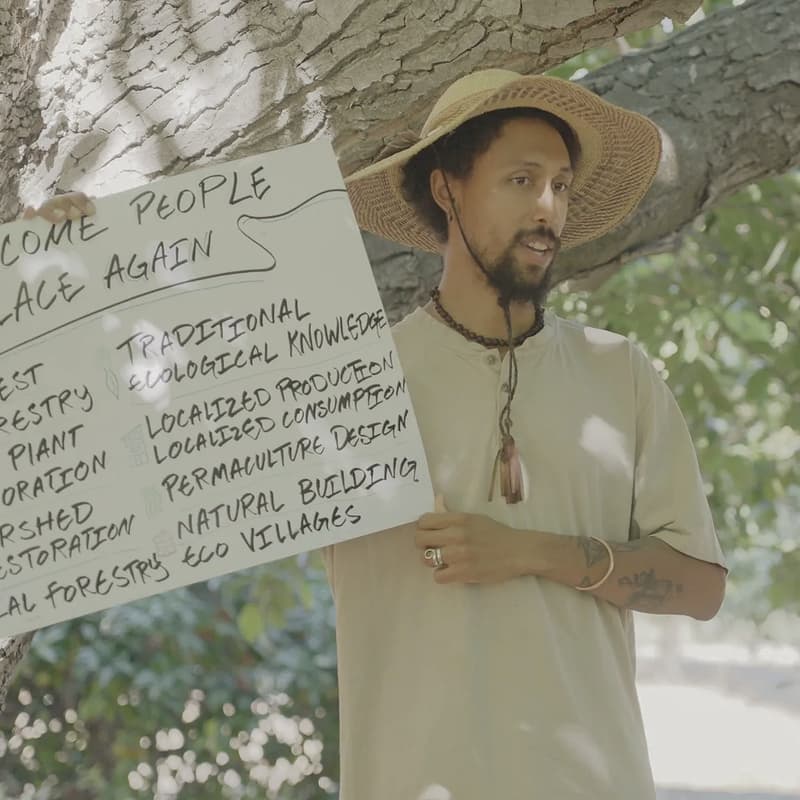 COME PEOPLE
LACE AGAIN
EST
RESTRY
PLANT
ORATION
RSHED
ESTORATION
AL FORESTRY
TRADITIONAL
ECOLOGICAL KNOWLEDGE
LOCALIZED PRODUCTION
LOCALIZED CONSUMPTION
PERMACULTURE DESIGN
NATURAL BUILDING
ECO VILLAGES